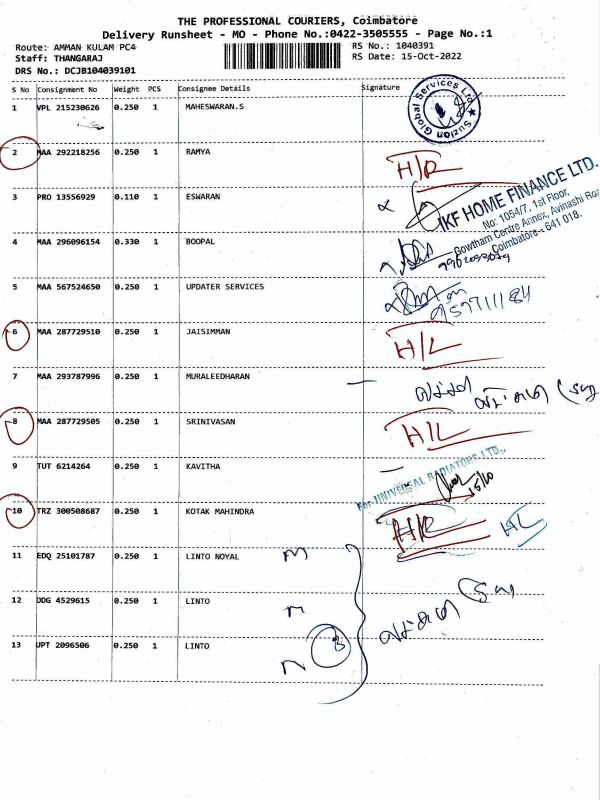 THE PROFESSIONAL COURIERS, Coimbatore
Delivery Runsheet - MO - Phone No.:0422-3505555 - Page No.:1
Route: AMMAN KULAM PC4
RS No.: 1040391
Staff: THANGARAJ
RS Date: 15-Oct-2022
DRS No.: DCJB104039101
S No Consignment No Weight PCS Consignee Details Signature
1 VPL 215230626 0.250 1 MAHESWARAN.S
Suzlon Global Services Ltd
2 MAA 292218256 0.250 1 RAMYA H/R
3 PRO 13556929 0.110 1 ESWARAN
IKF HOME FINANCE LTD.
No: 1054/7, 1st Floor,
Gowtham Centre Annex, Avinashi Road
Coimbatore - 641 018.
4 MAA 296096154 0.330 1 BOOPAL
5 MAA 567524650 0.250 1 UPDATER SERVICES
6 MAA 287729510 0.250 1 JAISIMMAN H/L
7 MAA 293787996 0.250 1 MURALEEDHARAN
8 MAA 287729505 0.250 1 SRINIVASAN H/L
9 TUT 6214264 0.250 1 KAVITHA
For UNIVERSAL RADIATORS LTD.,
15/10
10 TRZ 300508687 0.250 1 KOTAK MAHINDRA H/R HL
11 EDQ 25101787 0.250 1 LINTO NOYAL
12 DDG 4529615 0.250 1 LINTO
13 JPT 2096506 0.250 1 LINTO
3